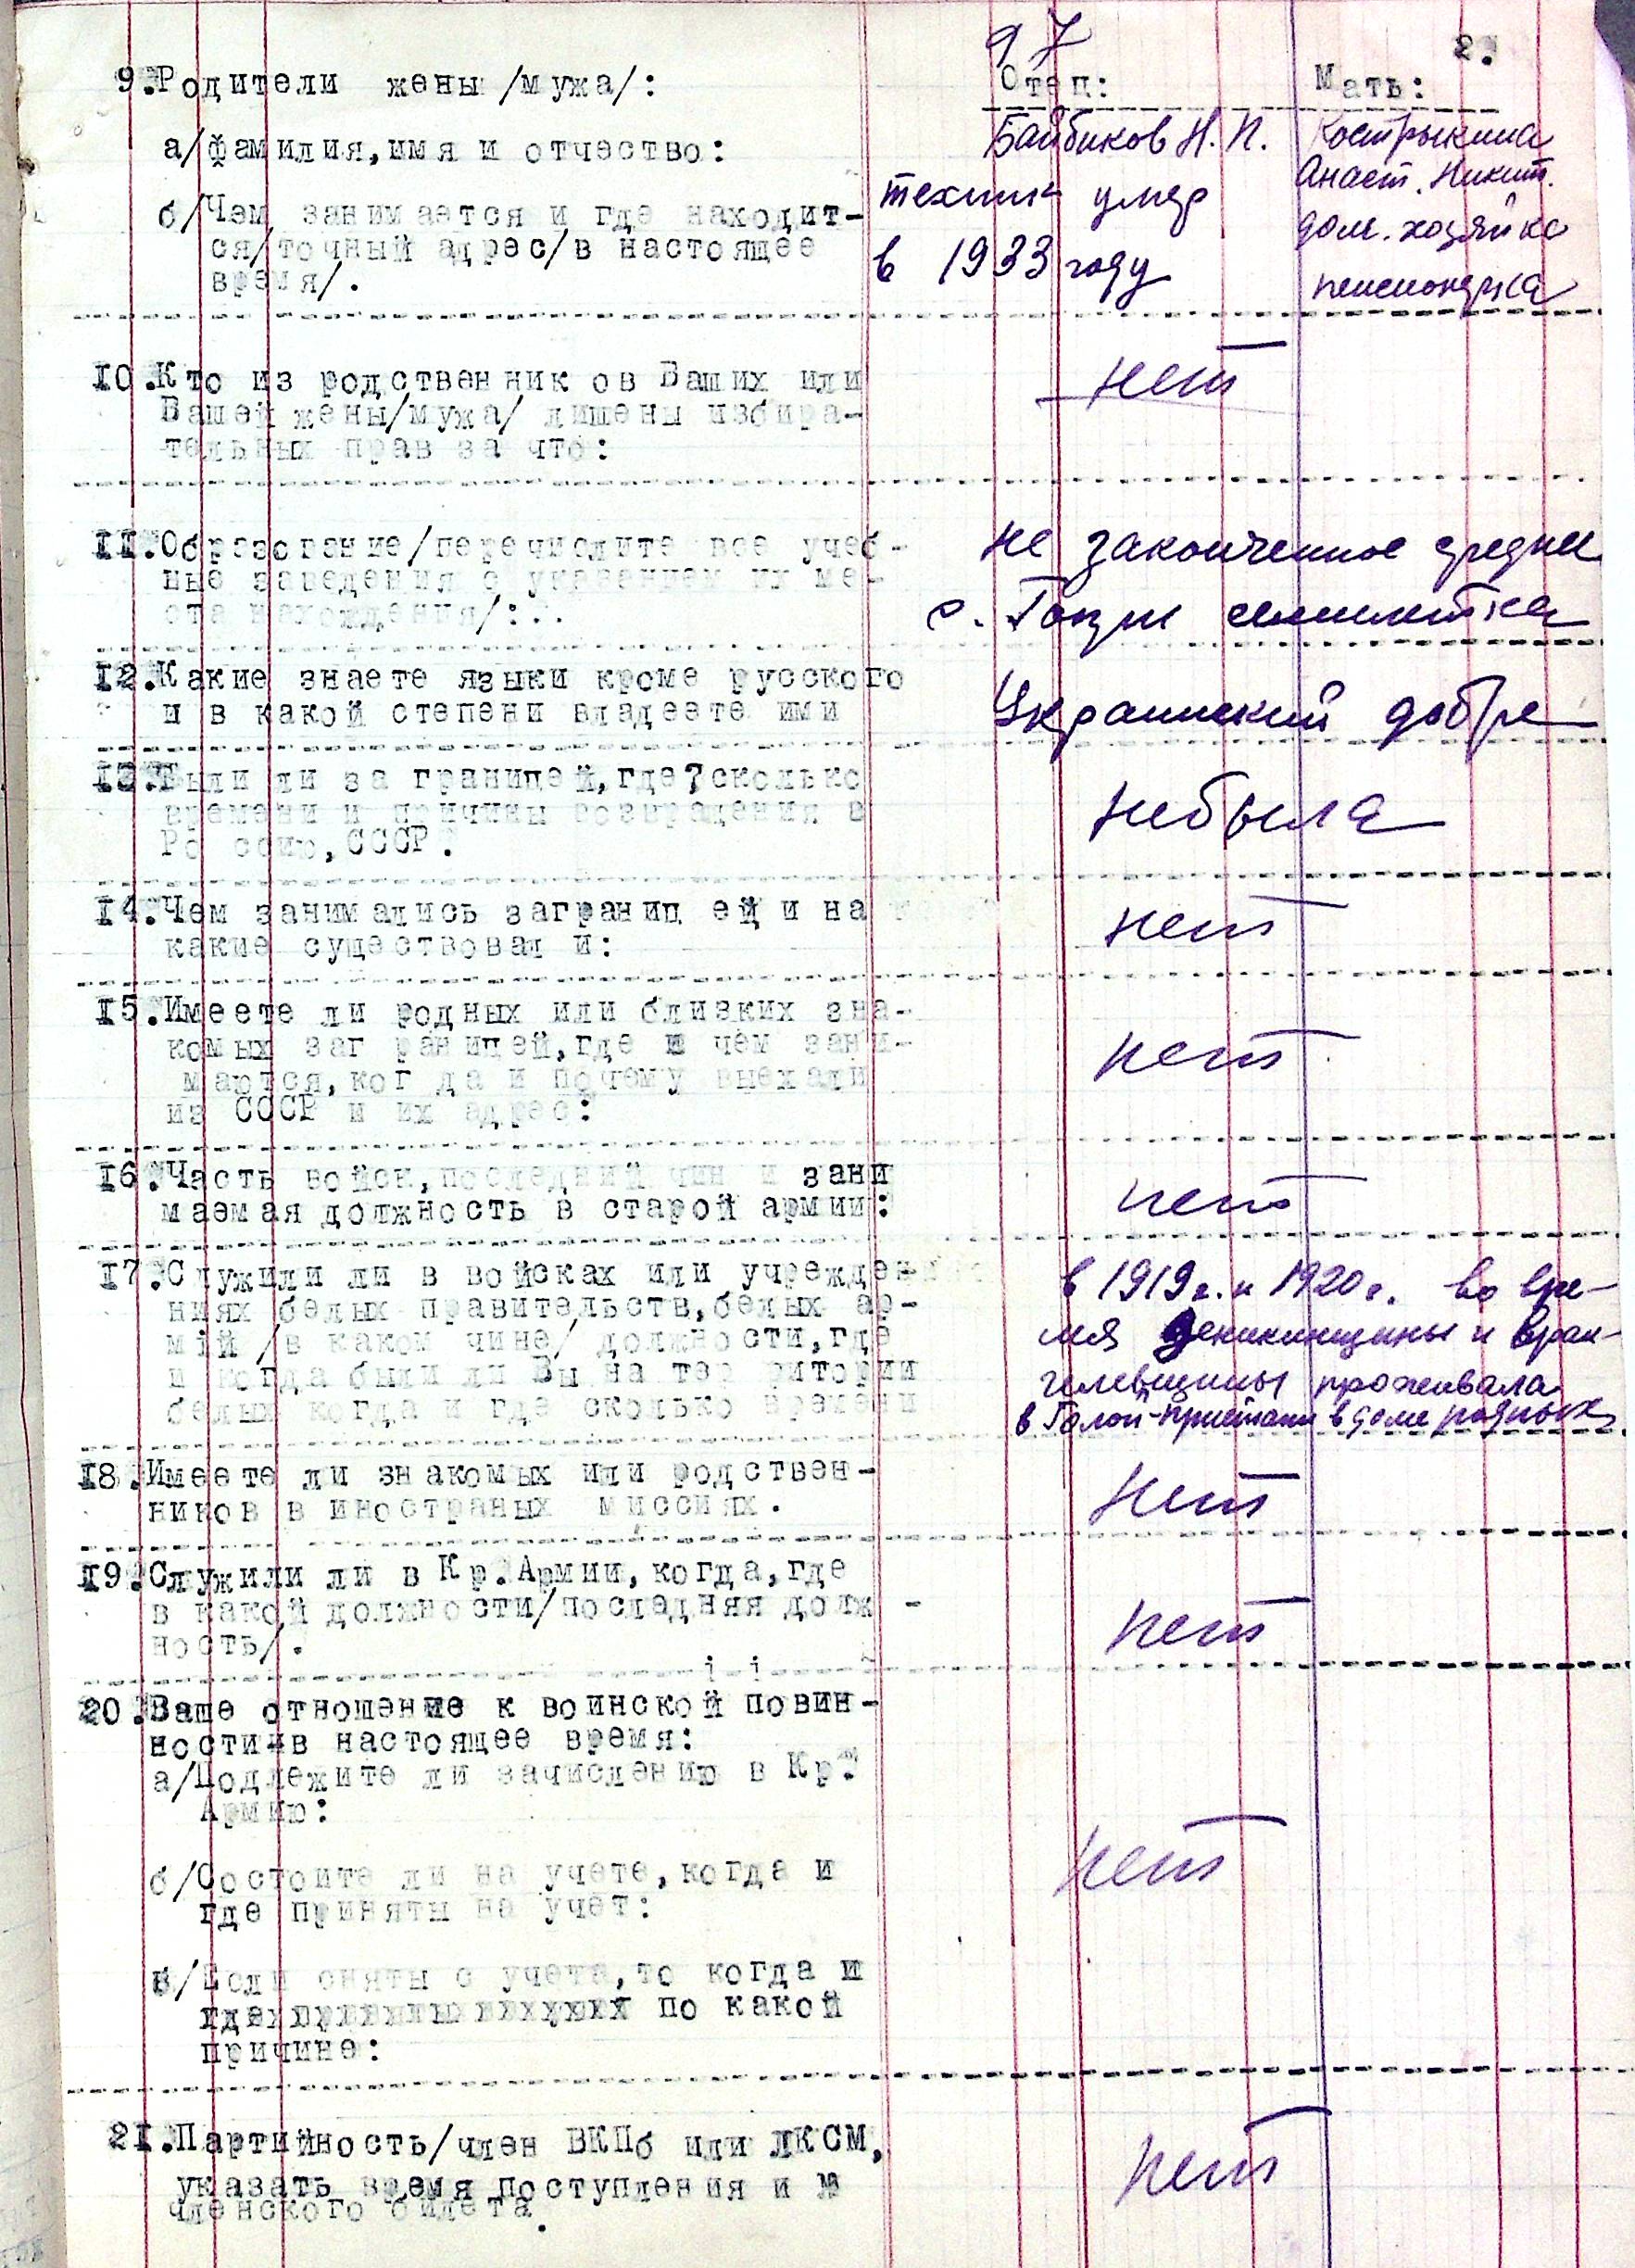 97
2.
9.Родители жены/мужа/: Отец: Мать:
а/фамилия,имя и отчество: Байбиков Н.П. Кострыкина
Анаст. Никит.
б/Чем занимается и где находит- техник умер дом. хозяйка
ся/точный адрес/в настоящее в 1933 году
время/. пенсионерка
10.Кто из родственников Ваших или нет
Вашей жены/мужа/ лишены избира-
тельных прав за что:
11.Образование/перечислите все учеб- не законченное среднее
ные заведения с указанием их ме- с. семилетка
ста нахождения/:..
12.Какие знаете языки кроме русского
и в какой степени владеете ими Украинский добре
13.Были ли за границей,где?сколько
времени и причины возвращения в небыла
Россию,СССР.
14.Чем занимались заграницей и на нет
какие существовали:
15.Имеете ли родных или близких зна-
комых заграницей,где и чем зани- нет
маются,когда и почему выехали
из СССР и их адрес:
16.Часть войск,последний чин и зани
маемая должность в старой армии: нет
17.Служили ли в войсках или учрежде- в 1919г. и 1920г. во вре-
ниях белых правительств,белых ар-
мій /в каком чине/ должности,где мя деникинщины и вран-
и когда были ли Вы на территории гелевщины проживала
белых когда и где сколько времени в Голой-Пристани в доме родных
18.Имеете ли знакомых или родствен- нет
ников в иностраных миссиях.
19.Служили ли в Кр.Армии,когда,где
в какой должности/последняя долж- нет
ность/.
20.Ваше отношение к воинской повин-
ности в настоящее время:
а/Подлежите ли зачислению в Кр.
Армию:
б/Состоите ли на учете,когда и нет
где приняты на учет:
в/Если сняты с учета,то когда и
где по какой
причине:
21.Партийность/член ВКПб или ЛКСМ, нет
указать время поступления и №
членского билета.